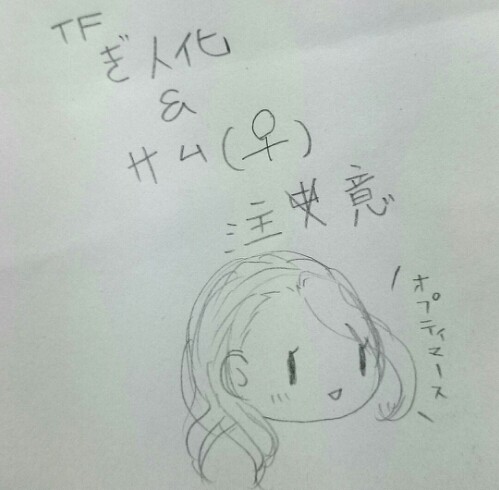 TF
ぎ人化
&
サム(♀)
注意
\オプティマース/